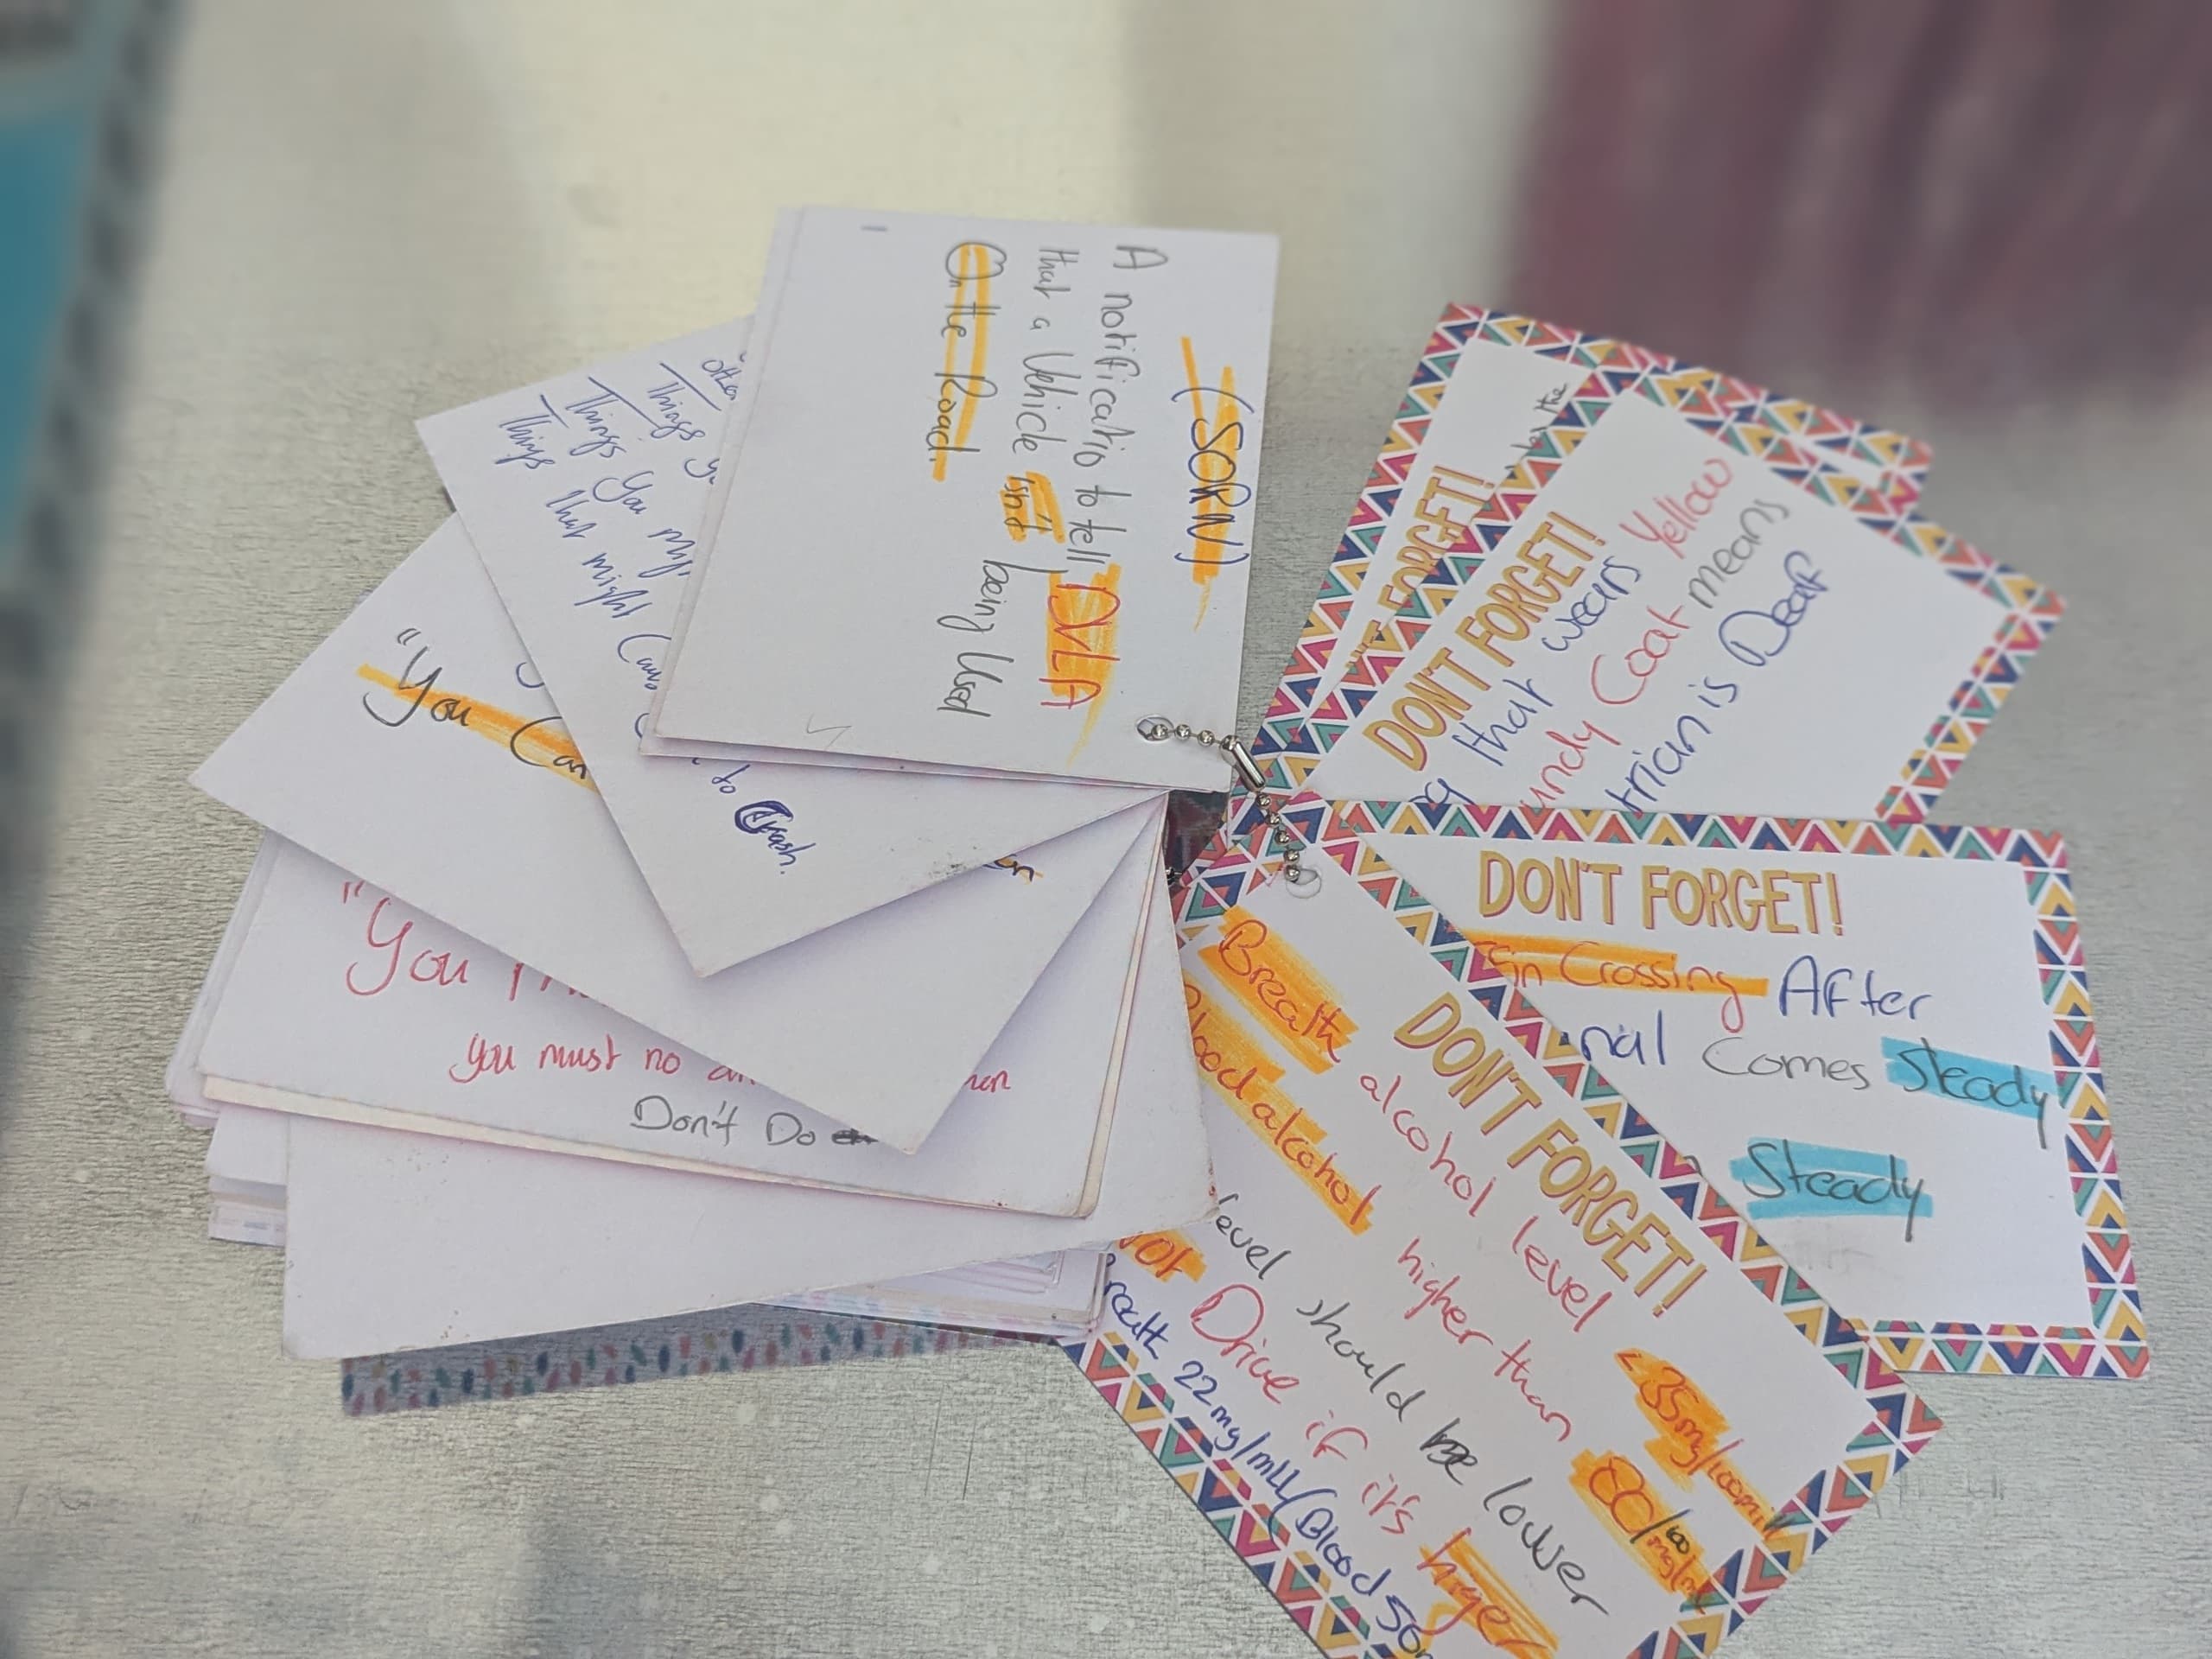 (SORN)
A notificatio to tell DVLA
that a Vehicle isn't being Used
On the Road.
other
Things
Things You my
Things that might Caus
to Crash.
"You Can
"You
you must no
Don't Do
the
FORGET!
DON'T FORGET!
that wears Yellow
Coat means
is Deaf
DON'T FORGET!
Crossing After
Comes Steady
Steady
DON'T FORGET!
Breath alcohol level <35mg/100mil
alcohol higher than 80/100 mg/ml
level should be lower
Drive if it's higer
22mg/mll/Blood 50